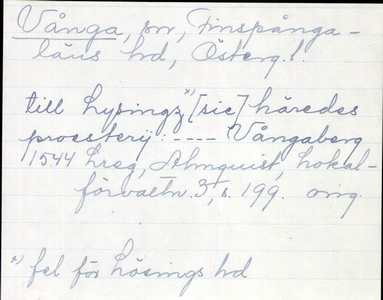 Vånga, sn, Finspånga-
läns hd, Östergl.
till Lysingz x) [sic] häredes
proesterij ---- Vångaberg
1544 hreg, Almquist, Lokal-
förvaltn. 3, s. 199. orig.
x) fel för Lösings hd